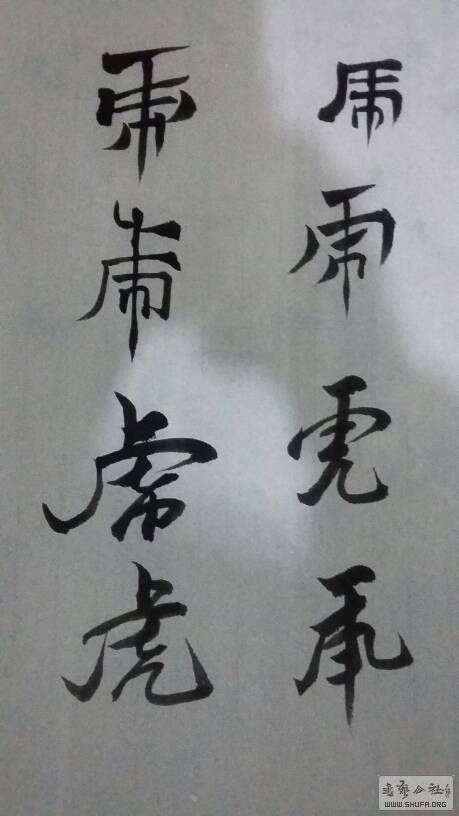 虎虎虎虎
虎虎虎虎
書藝公社
WWW.SHUFA.ORG